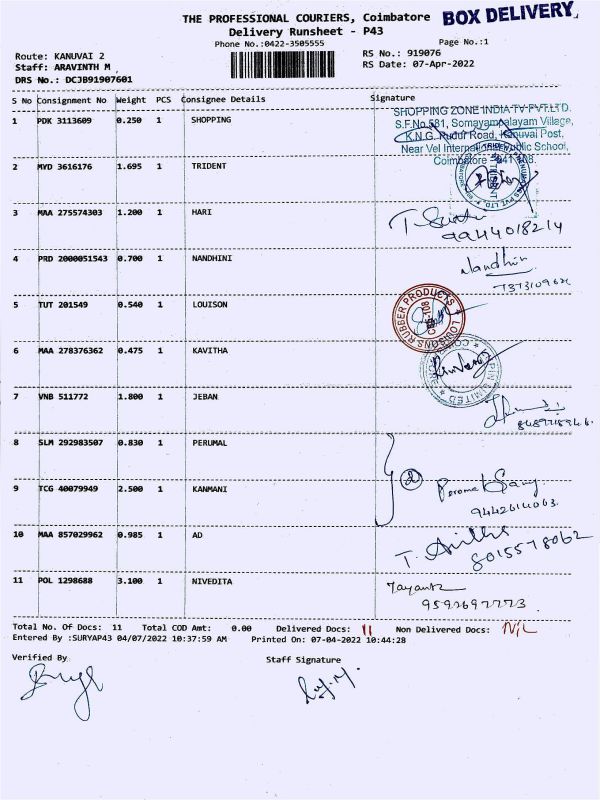 THE PROFESSIONAL COURIERS, Coimbatore BOX DELIVERY
Delivery Runsheet - P43
Phone No.:0422-3505555 Page No.:1
Route: KANUVAI 2 RS No.: 919076
Staff: ARAVINTH M RS Date: 07-Apr-2022
DRS No.: DCJB91907601
S No Consignment No Weight PCS Consignee Details Signature
1 PDK 3113609 0.250 1 SHOPPING
SHOPPING ZONE INDIA TV PVT.LTD.
S.F.No.581, Somayampalayam Village,
K.N.G. Pudur Road, Kanuvai Post,
Near Vel International Public School,
Coimbatore - 641 108.
2 MYD 3616176 1.695 1 TRIDENT
TRIDENT
3 MAA 275574303 1.200 1 HARI
9944018214
4 PRD 2000051543 0.700 1 NANDHINI Nandhini
5 TUT 201549 0.540 1 LOUISON
LOUISONS RUBBER PRODUCTS
6 MAA 278376362 0.475 1 KAVITHA
LIMITED
7 VNB 511772 1.800 1 JEBAN
8 SLM 292983507 0.830 1 PERUMAL
9 TCG 40079949 2.500 1 KANMANI
9442614063.
10 MAA 857029962 0.985 1 AD
8015578062
11 POL 1298688 3.100 1 NIVEDITA
9592697773.
Total No. Of Docs: 11 Total COD Amt: 0.00 Delivered Docs: 11 Non Delivered Docs: NIL
Entered By :SURYAP43 04/07/2022 10:37:59 AM Printed On: 07-04-2022 10:44:28
Verified By Staff Signature